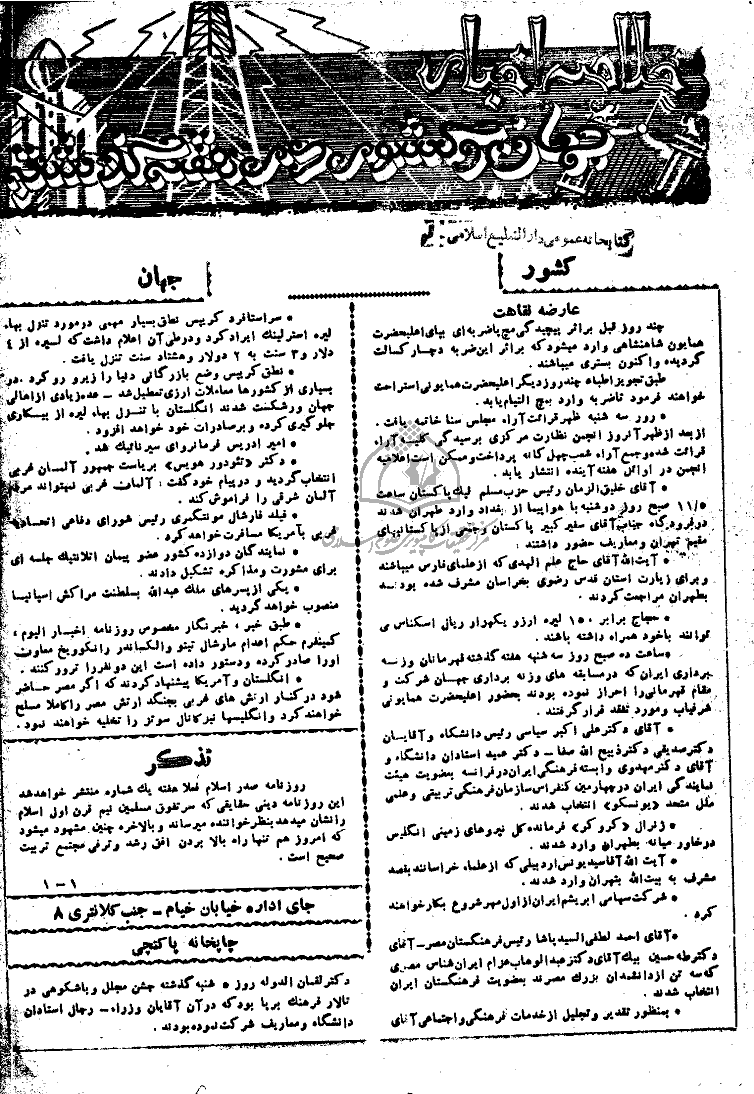 خلاصه اخبار
جهان و کشور در هفته گذشته
کتابخانه عمومی دارالتبلیغ اسلامی - قم
کشور
عارضه نقاهت
چند روز قبل براثر پیچیدگی مچ پا ضربه‌ای بپای اعلیحضرت
همایون شاهنشاهی وارد میشود که براثر این ضربه دچار کسالت
گردیده و اکنون بستری میباشند .
طبق تجویز اطباء چند روز دیگر اعلیحضرت همایونی استراحت
خواهند فرمود تا ضربه وارد بمچ التیام یابد .
• روز سه شنبه ظهر قرائت آراء مجلس سنا خاتمه یافت .
از بعد از ظهر آنروز انجمن نظارت مرکزی برسیدگی کلیه آراء
قرائت شده و جمع آراء شعب چهل گانه پرداخت و ممکن است اعلامیه
انجمن در اوائل هفته آینده انتشار یابد .
• آقای خلیق الزمان رئیس حزب مسلم لیگ پاکستان ساعت
۱۱/۵ صبح روز دوشنبه با هواپیما از بغداد وارد طهران شدند
در فرودگاه جناب آقای سفیر کبیر پاکستان و جمعی از پاکستانیهای
مقیم تهران و معاریف حضور داشتند .
• آیت الله آقای حاج علم الهدی که از علمای فارس میباشند
و برای زیارت آستان قدس رضوی بخراسان مشرف شده بودند
بطهران مراجعت کردند .
• حجاج برابر ۱۵۰ لیره ارز و یکهزار ریالی اسکناس می
توانند با خود همراه داشته باشند .
• ساعت ده صبح روز سه شنبه هفته گذشته قهرمانان وزنه
برداری ایران که در مسابقه های وزنه برداری جهان شرکت و
مقام قهرمانی را احراز نموده بودند بحضور اعلیحضرت همایونی
شرفیاب و مورد تفقد قرار گرفتند .
• آقای دکتر علی اکبر سیاسی رئیس دانشگاه و آقایان
دکتر صدیقی دکتر ذبیح الله صفا - دکتر عمید استادان دانشگاه و
آقای دکتر مهدوی وابسته فرهنگی ایران در فرانسه بعضویت هیئت
نمایندگی ایران در چهارمین کنفراس سازمان فرهنگی تربیتی و علمی
ملل متحد «یونسکو» انتخاب شدند .
• ژنرال «کروکر» فرمانده کل نیروهای زمینی انگلیس
در خاور میانه بطهران وارد شدند .
• آیت الله آقا سید یونس اردبیلی که از علماء خراسانند بقصد
مشرف به بیت الله بتهران وارد شدند .
• شرکت سهامی ابریشم ایران از اول مهر شروع بکار خواهند
کرد .
• آقای احمد لطفی السید پاشا رئیس فرهنگستان مصر - آقای
دکتر طه حسین بیك آقای دکتر عبدالوهاب عزام ایران شناس مصری
که سه تن از دانشمندان بزرگ مصرند بعضویت فرهنگستان ایران
انتخاب شدند .
• بمنظور تقدیر و تجلیل از خدمات فرهنگی و اجتماعی آقای
جهان
• سر استافرد کریپس نطق بسیار مهمی در مورد تنزل بهاء
لیره استرلینك ایراد کرد و در طی آن اعلام داشت که لیره از ۴
دلار و ۳ سنت به ۲ دولار و هشتاد سنت تنزل یافت .
• نطق کریپس وضع بازرگانی دنیا را زیر و رو کرد . در
بسیاری از کشورها معاملات ارزی تعطیل شد - عده زیادی از اهالی
جهان ورشکست شدند انگلستان با تنزل بهاء لیره از بیکاری
جلوگیری کرده و بر صادرات خود خواهد افزود .
• امیر ادریس فرمانروای سیرنائیك شد .
• دکتر «تئودور هویس» بریاست جمهور آلمان غربی
انتخاب گردید و در پیام خود گفت : آلمان غربی نمیتواند مردم
آلمان شرقی را فراموش کند .
• فیلد مارشال مونتگمری رئیس شورای دفاعی اتحادیه
غربی بآمریکا مسافرت خواهد کرد .
• نمایندگان دوازده کشور عضو پیمان اتلانتیك جلسه ای
برای مشورت و مذاکره تشکیل دادند .
• یکی از پسرهای ملك عبدالله بسلطنت مراکش اسپانیا
منصوب خواهد گردید .
• طبق خبر ، خبرنگار مخصوص روزنامه اخبار الیوم ،
کمینفرم حکم اعدام مارشال تیتو و الکساندر رانکوویخ معاون
او را صادر کرده و دستور داده است این دو نفر را ترور کنند .
• انگلستان و آمریکا پیشنهاد کردند که اگر مصر حاضر
شود در کنار ارتش های غربی بجنگد ارتش مصر را کاملا مسلح
خواهند کرد و انگلیسها نیز کانال سوئز را تخلیه خواهند نمود .
تذکر
روزنامه صدر اسلام فعلا هفته یك شماره منتشر خواهد شد
این روزنامه دینی حقایقی که سر تفوق مسلمین نیم قرن اول اسلام
را نشان میدهد بنظر خواننده میرساند و بالاخره چنین مشهود میشود
که امروز هم تنها راه بالا بردن افق رشد و ترقی مجتمع تربیت
صحیح است .
۱-۱
جای اداره خیابان خیام - جنب کلانتری ۸
چاپخانه پاکتچی
دکتر لقمان الدوله روز ۵ شنبه گذشته جشن مجلل و باشکوهی در
تالار فرهنك برپا بود که در آن آقایان وزراء - رجال استادان
دانشگاه و معاریف شرکت نموده بودند .